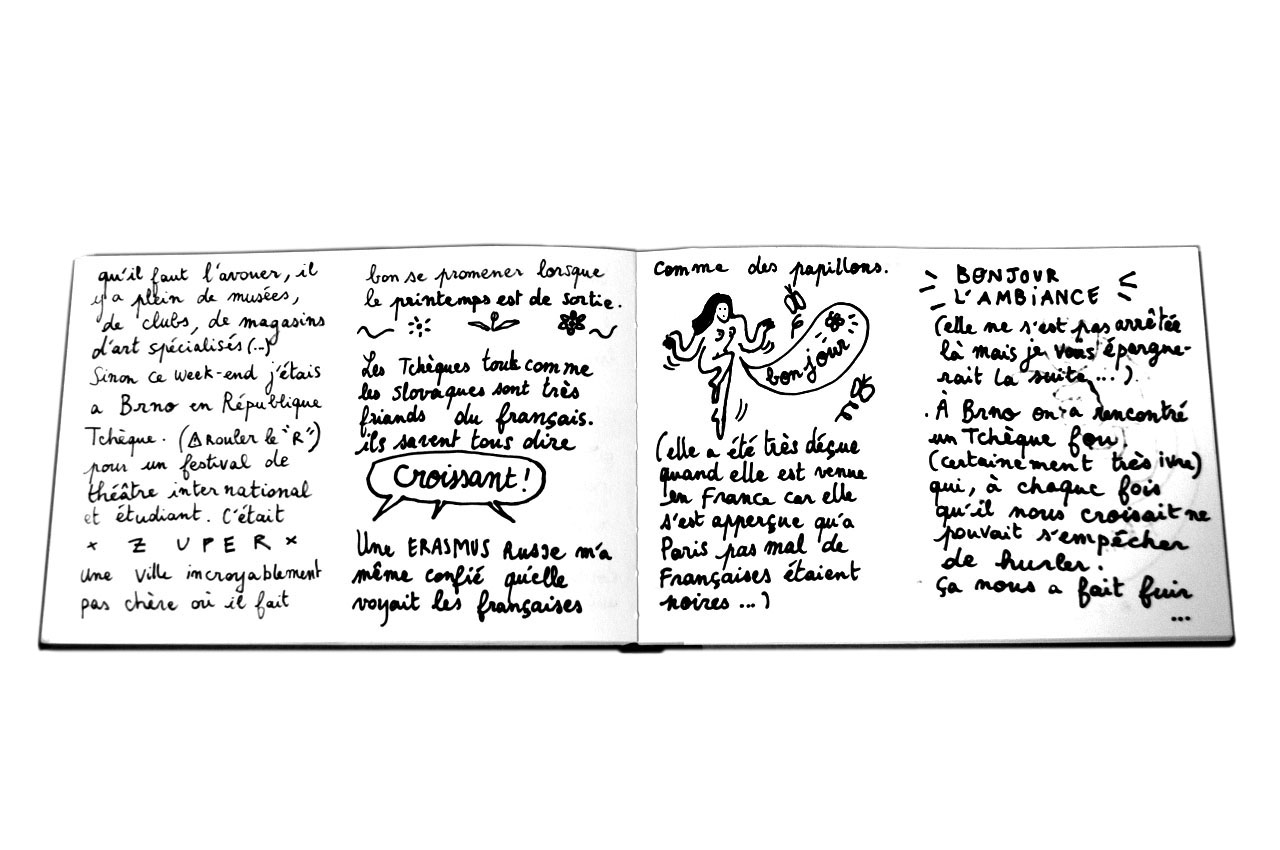 qu'il faut l'avouer, il
y a plein de musées,
de clubs, de magasins
d'art spécialisés (...)
Sinon ce week-end j'étais
a Brno en République
Tchèque. (⚠ Rouler le "R")
pour un festival de
théâtre international
et étudiant. C'était
× Z U P E R ×
une ville incroyablement
pas chère où il fait
bon se promener lorsque
le printemps est de sortie.
Les Tchèques tout comme
les slovaques sont très
friands du français.
ils savent tous dire
Croissant !
Une ERASMUS Russe m'a
même confié qu'elle
voyait les françaises
comme des papillons.
bonjour
(elle a été très déçue
quand elle est venue
en France car elle
s'est apperçue qu'a
Paris pas mal de
Françaises étaient
noires ...)
BONJOUR
L'AMBiANCE
(elle ne s'est pas arrêtée
là mais je vous épargne-
rait la suite ...).
. À Brno on a rencontré
un Tchèque fou,
(certainement très ivre)
qui, à chaque fois
qu'il nous croisait ne
pouvait s'empêcher
de hurler.
ça nous a fait fuir
...